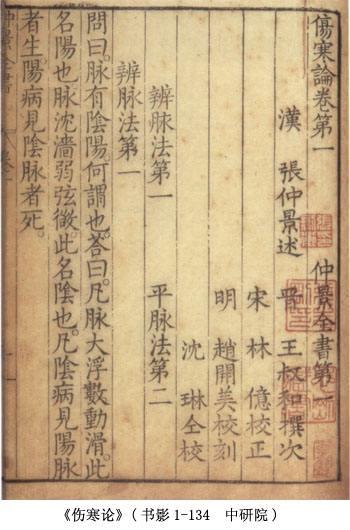 傷寒論卷第一　仲景全書第一
漢　張仲景述　晉　王叔和撰次
宋　林　億校正
明　趙開美校刻
沈　琳仝校
辨脉法第一　平脉法第二
辨脉法第一
問曰。脉有陰陽。何謂也。荅曰。凡脉大浮數動滑。此
名陽也。脉沈濇弱弦微。此名陰也。凡陰病見陽脉
者生。陽病見陰脉者死。
仲景全書
《伤寒论》（书影 1-134　中研院）